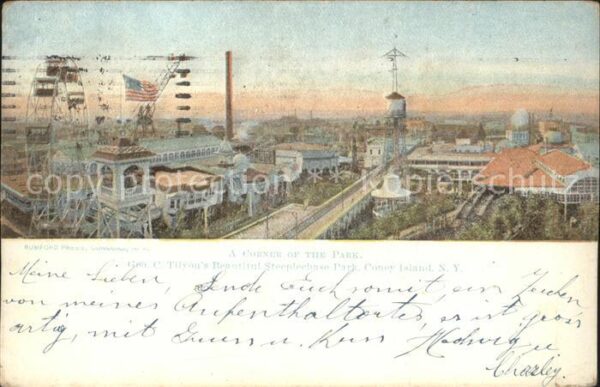 copyright picture
copyright picture
A CORNER OF THE PARK.
GEO. C. Tilyou's Beautiful Steeplechase Park, Coney Island, N. Y.
Meine Lieben, Sende Euch somit, ein Zeichen
von meines Aufenthaltortes, es ist gross
artig, mit Gruss u. Kuss Hedwig u
Charley.